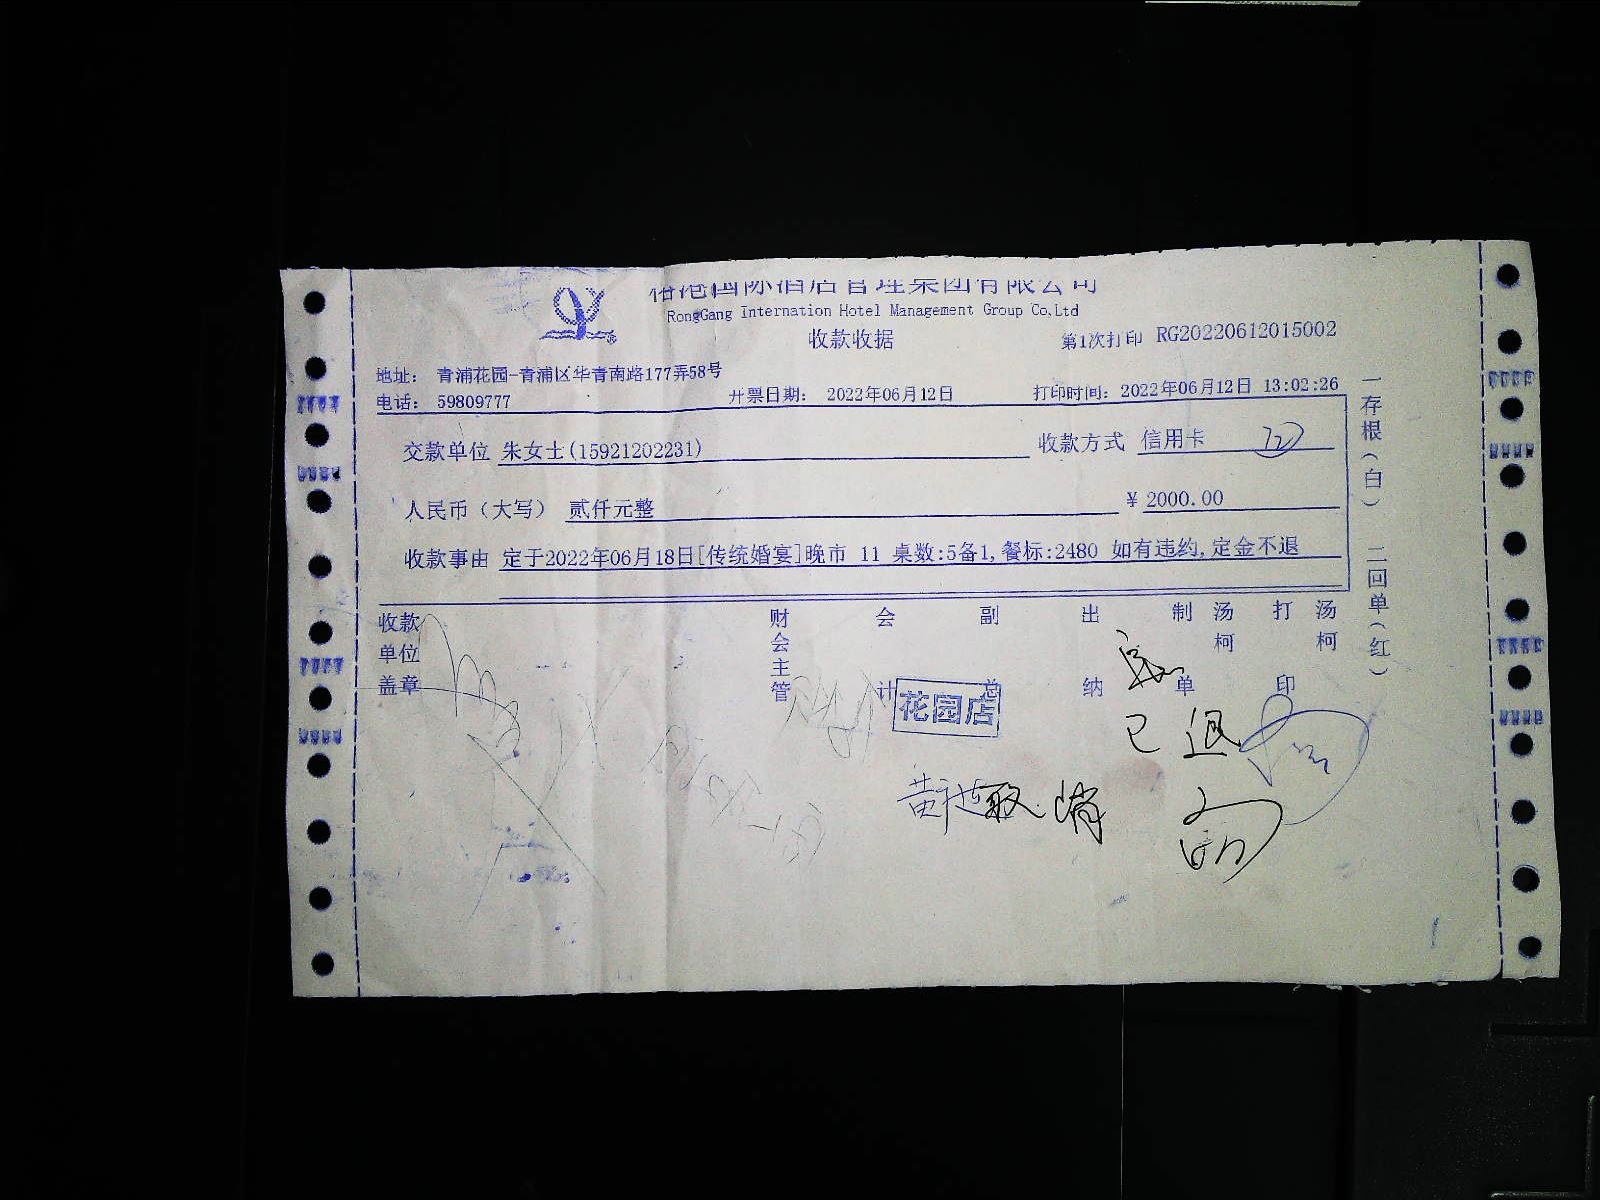 港国际酒店管理集团有限公司
RongGang International Hotel Management Group Co,Ltd
收款收据
第1次打印 RG20220612015002
地址： 青浦花园-青浦区华青南路177弄58号
电话： 59809777 开票日期： 2022年06月12日 打印时间：2022年06月12日 13:02:26
交款单位 朱女士(15921202231) 收款方式 信用卡
人民币（大写） 贰仟元整 ￥2000.00
收款事由 定于2022年06月18日[传统婚宴]晚市 11 桌数:5备1,餐标:2480 如有违约,定金不退
一存根（白） 二回单（红）
收款单位盖章 财会主管 会计 副总 出纳 制单 汤柯 打印 汤柯
花园店
已退